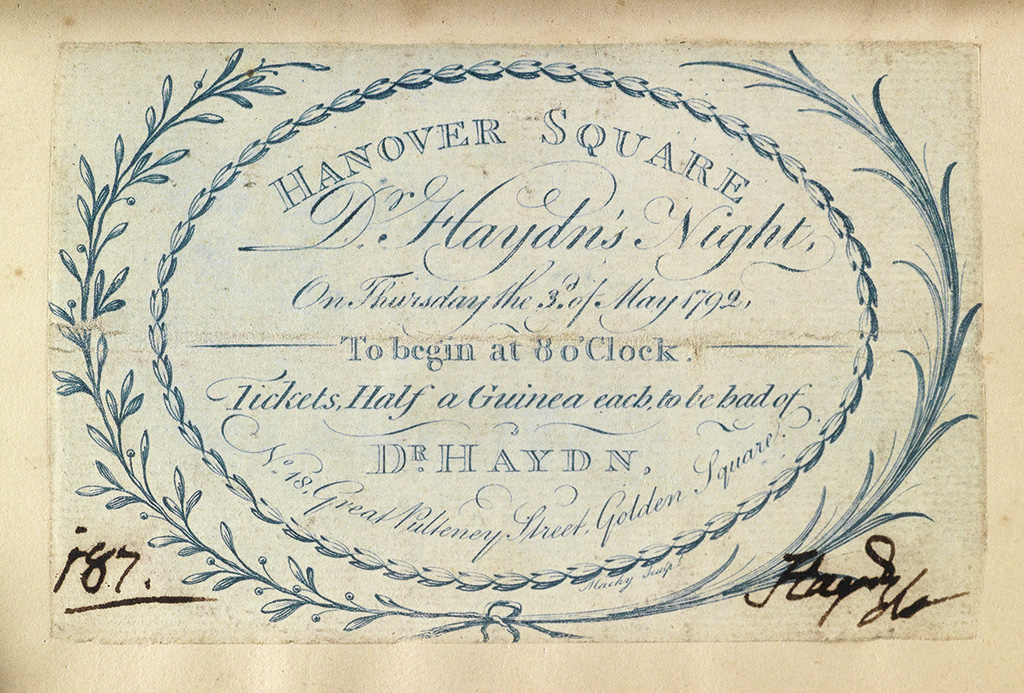 HANOVER SQUARE
Dr. Haydn's Night,
On Thursday the 3d. of May 1792,
To begin at 8 o'Clock.
Tickets, Half a Guinea each, to be had of
DR. HAYDN,
No. 18, Great Pulteney Street, Golden Square.
Macky Sculpt.
187.
Haydn